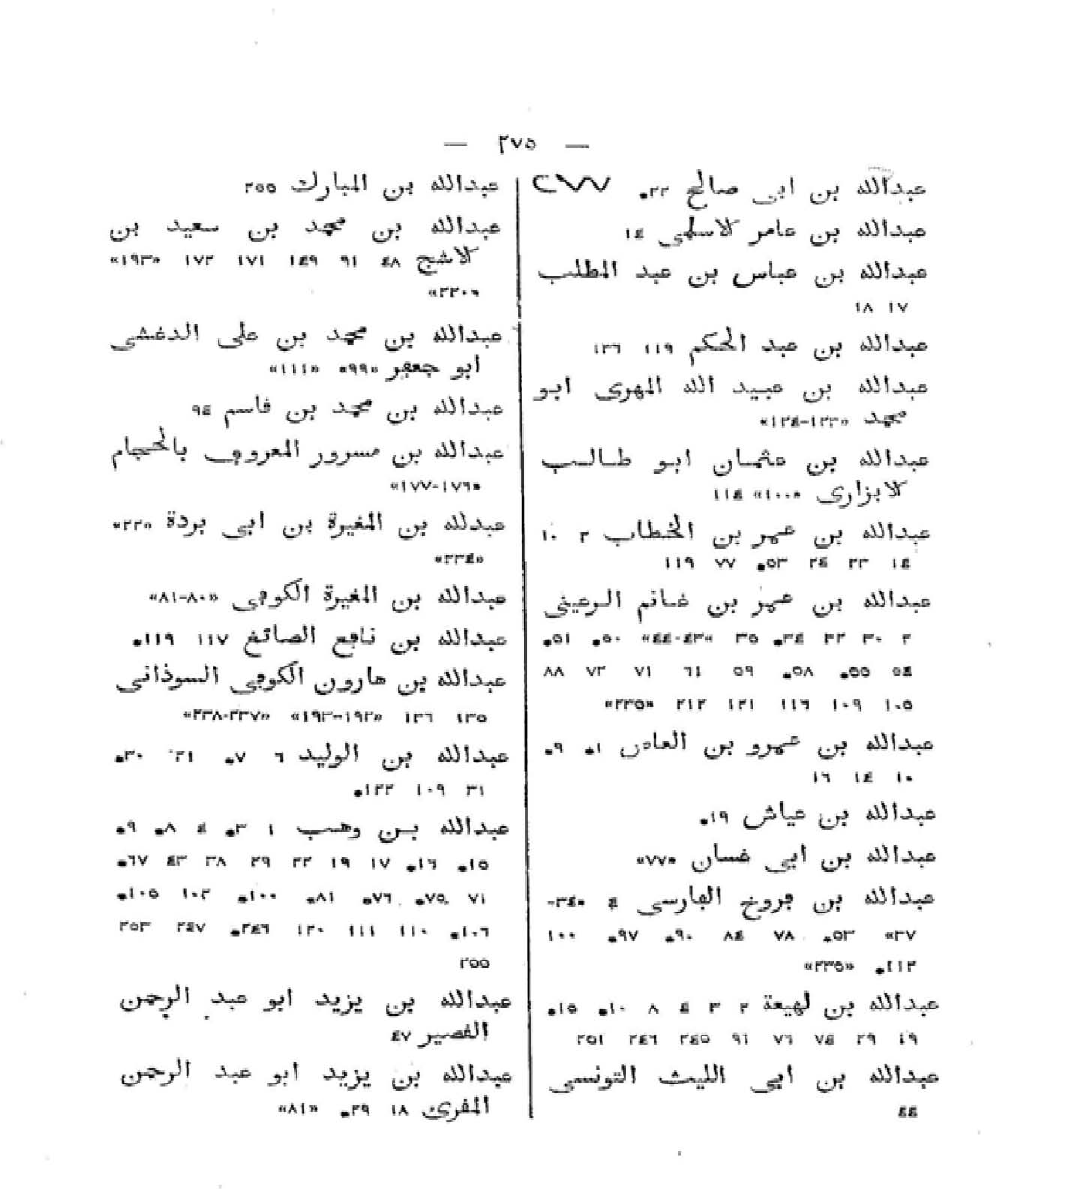 — ٢٧٥ —
عبدالله بن ابى صالح ٢٢.
عبدالله بن عامر الاسلمى ١٤
عبدالله بن عباس بن عبد المطلب
١٧ ١٨
عبدالله بن عبد الحكم ١١٩ ١٣٦
عبدالله بن عبيد الله المهرى ابو
محمد «١٢٣-١٢٤»
عبدالله بن عثمان ابو طالب
الابزارى «١٠٠» ١١٤
عبدالله بن عمر بن الخطاب ٢ ١٠
١٤ ٢٣ ٢٤ ٥٣. ٧٧ ١١٩
عبدالله بن عمر بن غانم الرعينى
٢ ٣٠ ٣٢ ٣٤. ٣٥ «٤٣-٤٤» ٥٠. ٥١.
٥٤ ٥٥. ٥٨. ٥٩ ٦١ ٧١ ٧٣ ٨٨
١٠٥ ١٠٩ ١١٦ ١٢١ ٢١٢ «٢٣٥»
عبدالله بن عمرو بن العاص ١. ٩.
١٠ ١٤ ١٦
عبدالله بن عياش ١٩.
عبدالله بن ابى غسان «٧٧»
عبدالله بن فروخ الفارسى ٤ «٣٤-
٣٧» ٥٣. ٧٨ ٨٤ ٩٠. ٩٧. ١٠٠
١١٢. «٢٣٥»
عبدالله بن لهيعة ٢ ٣ ٤ ٨ ١٠. ١٥.
١٩ ٢٩ ٧٤ ٧٦ ٩١ ٢٤٥ ٢٤٦ ٢٥١
عبدالله بن ابى الليث التونسى
٤٤
عبدالله بن المبارك ٢٥٥
عبدالله بن محمد بن سعيد بن
الاشج ٤٨ ٩١ ١٤٩ ١٧١ ١٧٢ «١٩٣»
«٢٢٠»
عبدالله بن محمد بن على الدغشى
ابو جعفر «٩٩» «١١١»
عبدالله بن محمد بن قاسم ٩٤
عبدالله بن مسرور المعروف بالحجام
«١٧٦-١٧٧»
عبدلله بن المغيرة بن ابى بردة «٢٢»
«٢٣٤»
عبدالله بن المغيرة الكوفى «٨٠-٨١»
عبدالله بن نافع الصائغ ١١٧ ١١٩.
عبدالله بن هارون الكوفى السوذانى
١٣٥ ١٣٦ «١٩٢-١٩٣» «٢٣٧-٢٣٨»
عبدالله بن الوليد ٦ ٧. ٢١ ٣٠.
٣١ ١٠٩ ١٢٢.
عبدالله بن وهب ١ ٣. ٤ ٨. ٩.
١٥. ١٦. ١٧ ١٩ ٢٢ ٢٩ ٣٨ ٤٣ ٦٧.
٧١ ٧٥. ٧٦. ٨١. ١٠٠. ١٠٢ ١٠٥.
١٠٦. ١١٠ ١١١ ١٢٠ ٢٤٦. ٢٤٧ ٢٥٣
٢٥٥
عبدالله بن يزيد ابو عبد الرحمن
القصير ٤٧
عبدالله بن يزيد ابو عبد الرحمن
المقرى ١٨ ٢٩. «٨١»